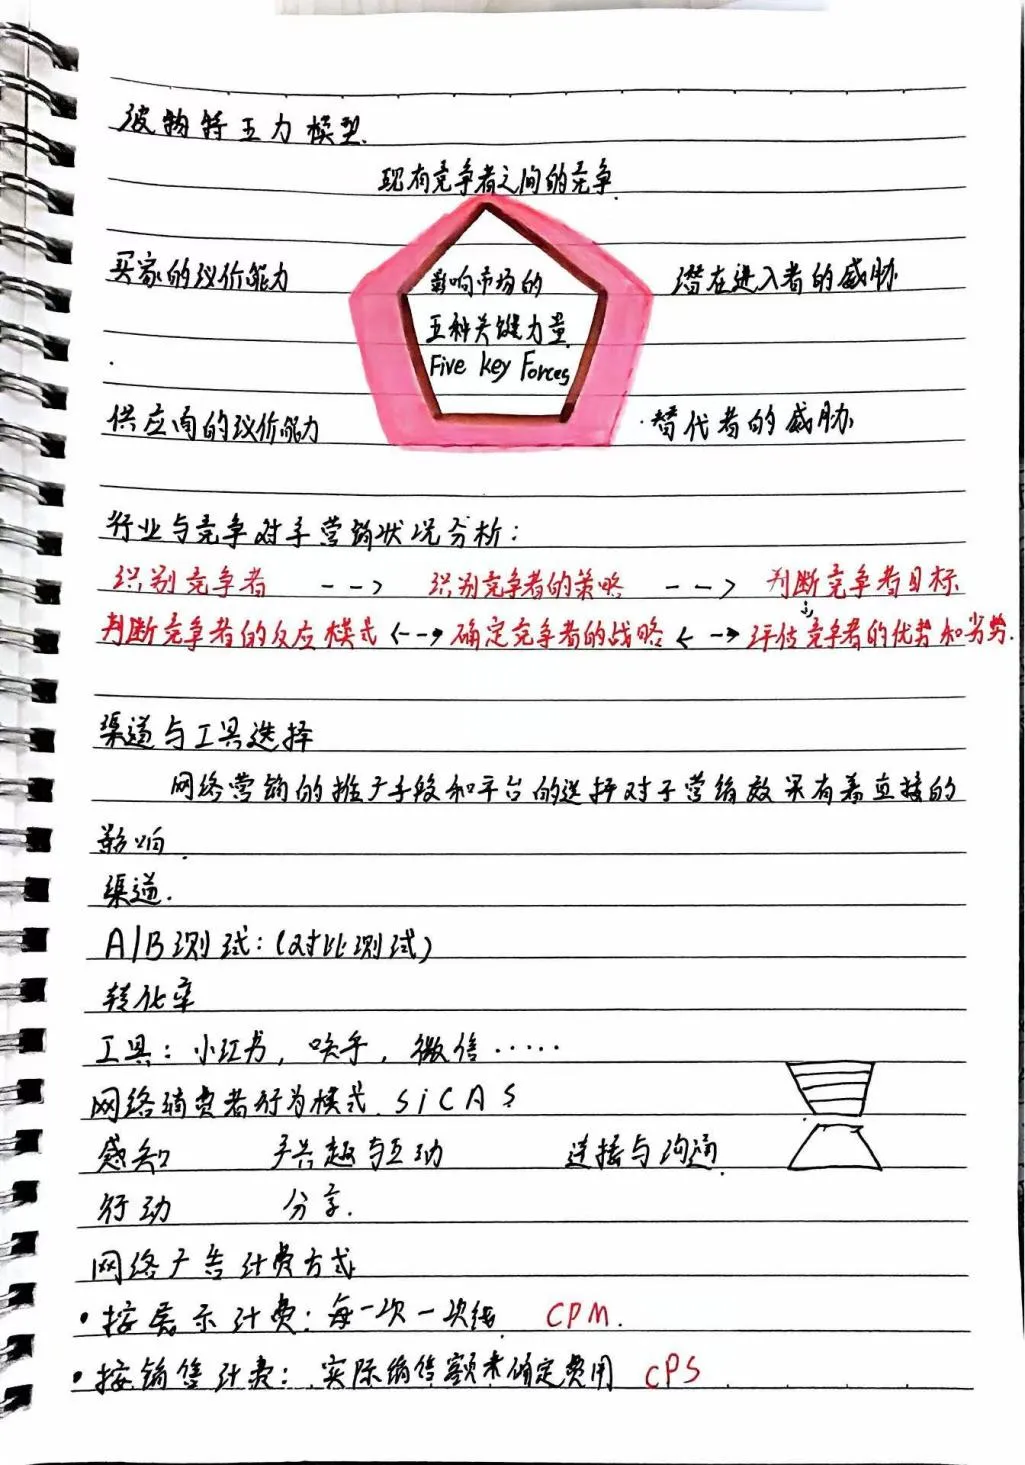 波特五力模型.
现有竞争者之间的竞争.
买家的议价能力 影响市场的 潜在进入者的威胁
五种关键力量
Five key Forces
供应商的议价能力 替代者的威胁.
行业与竞争对手营销状况分析:
识别竞争者 --> 识别竞争者的策略 --> 判断竞争者目标
判断竞争者的反应模式 <--> 确定竞争者的战略 <--> 评估竞争者的优势和劣势.
渠道与工具选择
网络营销的推广手段和平台的选择对于营销效果有着直接的
影响.
渠道.
A/B测试:(对比测试)
转化率
工具: 小红书, 知乎, 微信.....
网络消费者行为模式 SiCAS
感知 兴趣与互动 连接与沟通.
行动 分享.
网络广告计费方式
·按展示计费: 每一次一次钱 CPM.
·按销售计费: 实际销售额来确定费用 CPS